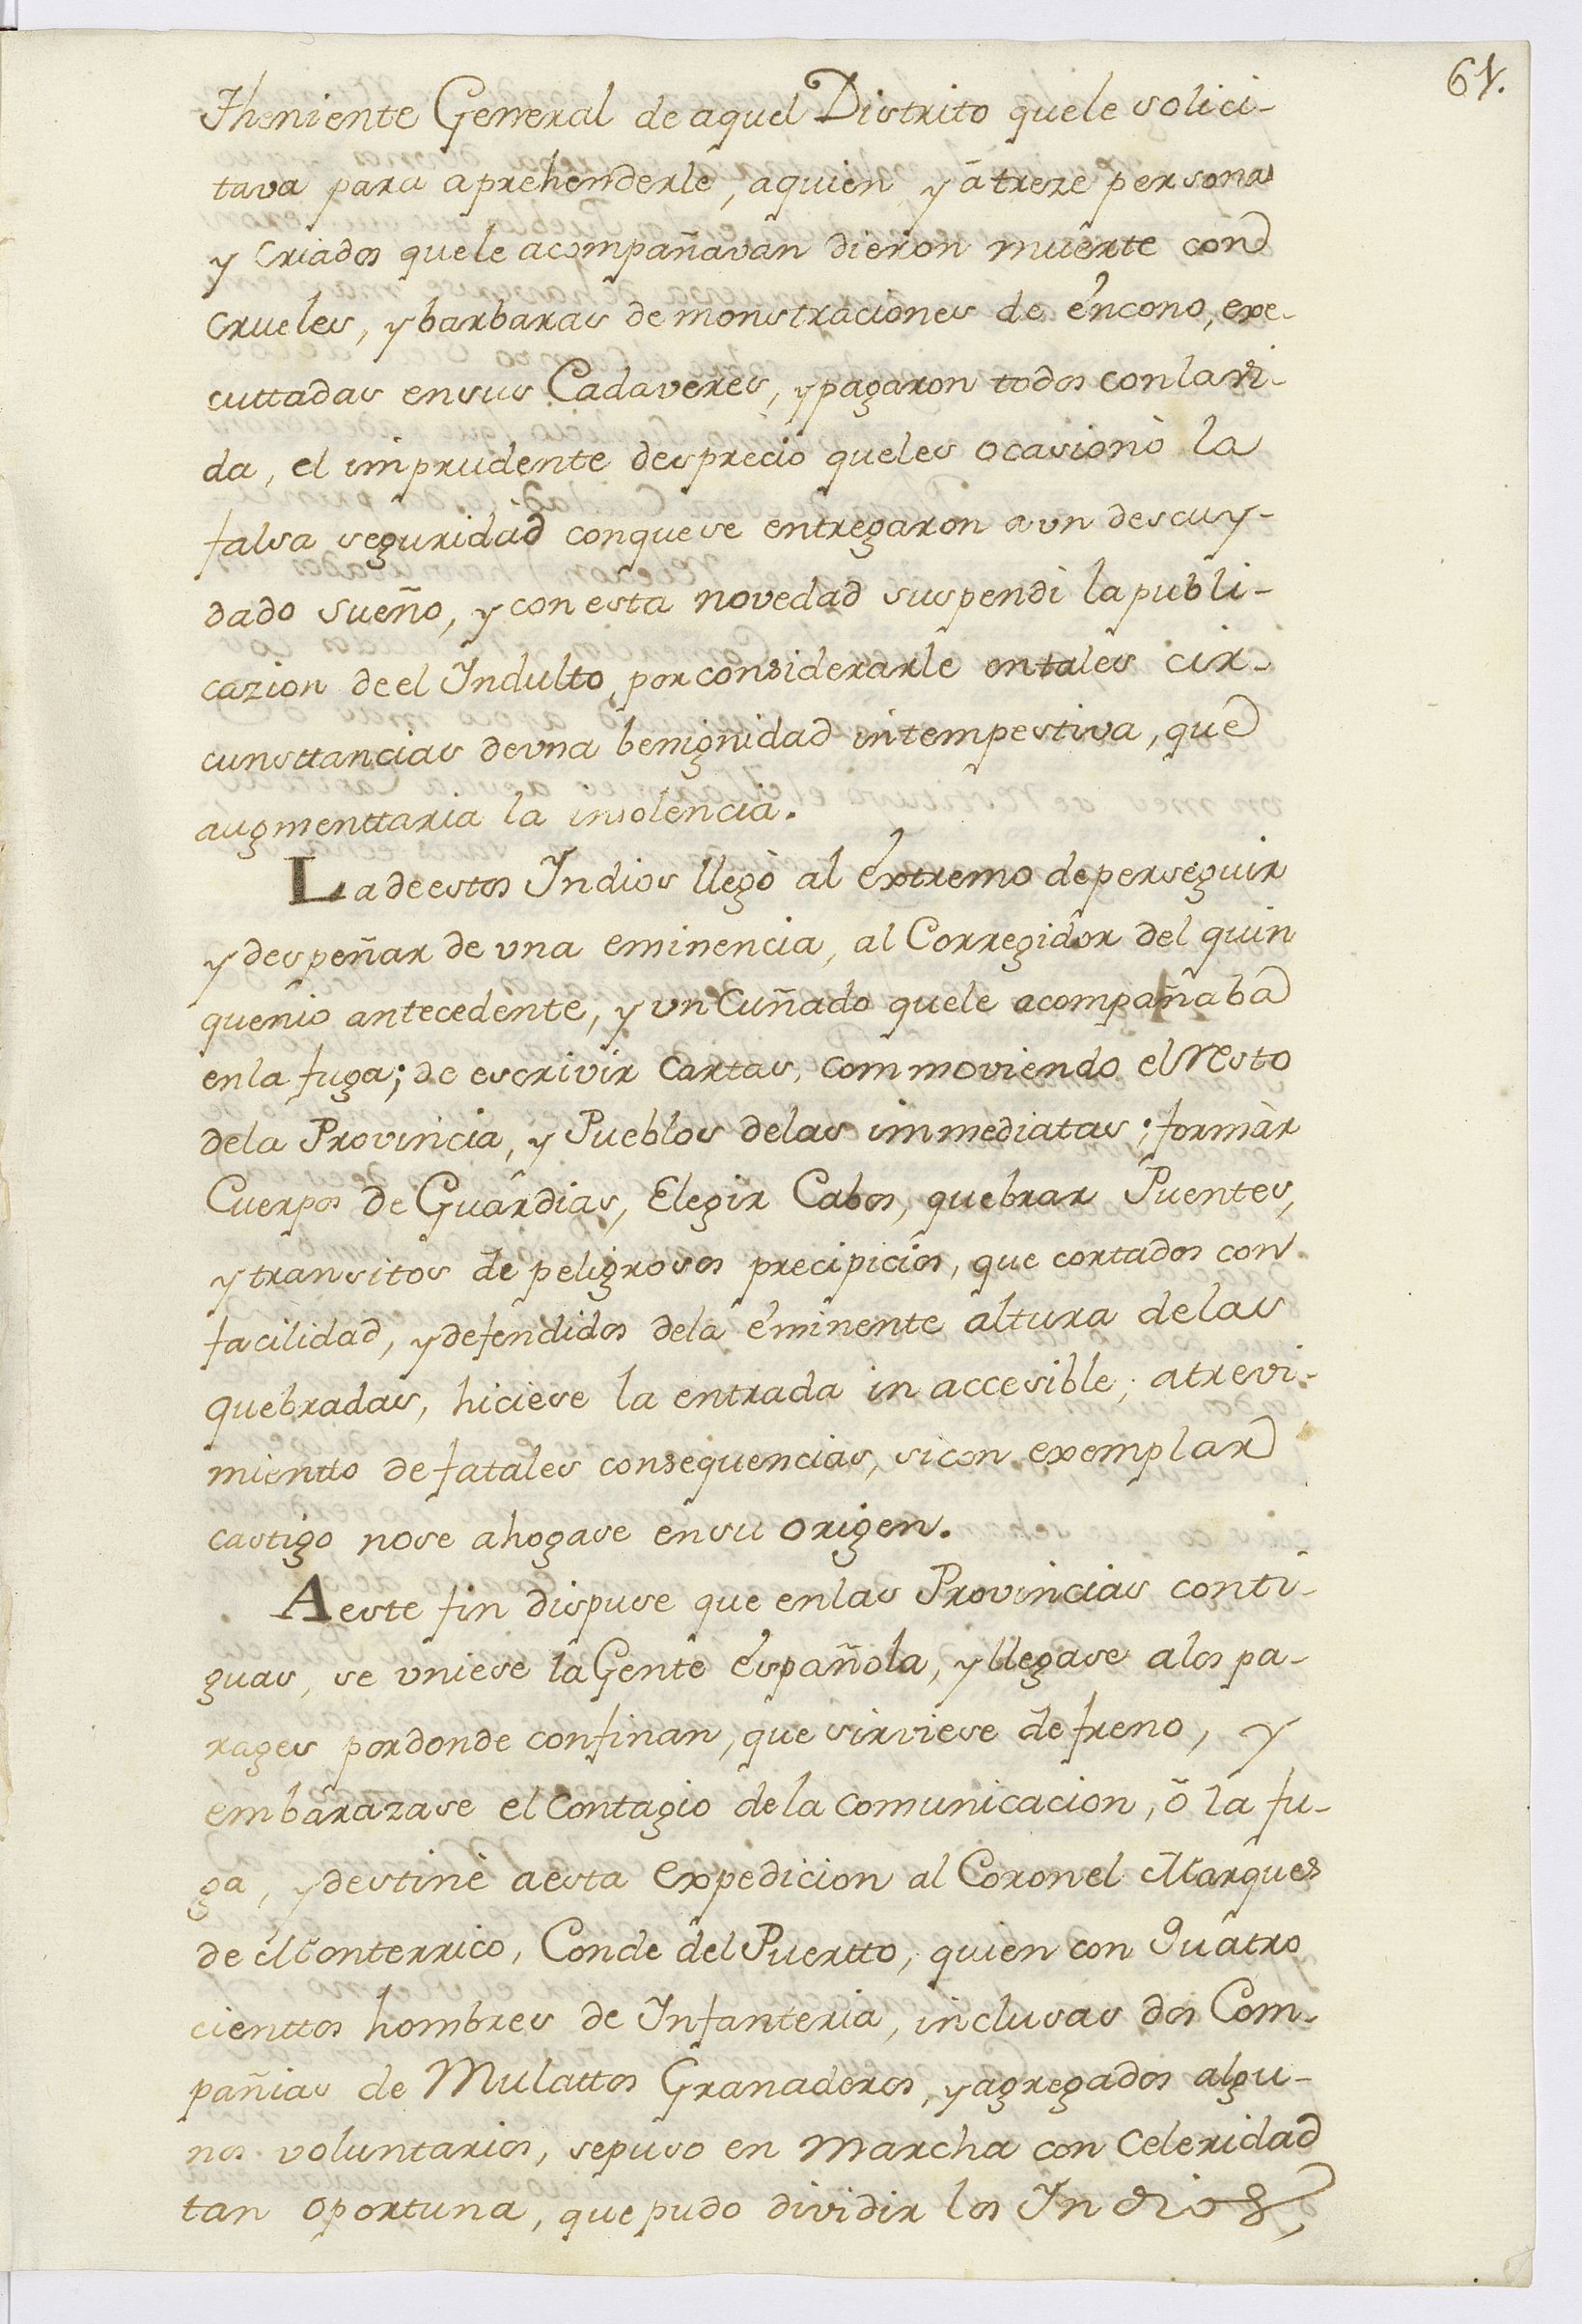 61.
Theniente General de aquel Distrito quele solici-
tava para aprehenderle, aquien y â treze personas
y criados quele acompañavan dieron muerte con
crueles, y barbaras demonstraciones de encono, exe-
cuttadas ensus Cadaveres, y pagaron todos conla vi-
da, el imprudente desprecio queles ocasionò la
falsa seguridad conquese entregaron a vn descuy-
dado sueño, y con esta novedad suspendi la publi-
cazion de el Indulto, por considerarle en tales cir-
cunsttancias devna benignidad intempestiva, que
augmenttaria la insolencia.
La deestos Indios llegò al extremo de perseguir
y despeñar de vna eminencia, al Corregidor del quin
quenio antecedente, y vn Cuñado quele acompañaba
enla fuga; de escrivir Cartas, commoviendo el resto
dela Provincia, y Pueblos delas immediatas; formàr
Cuerpos de Guardias, Elegir Cabos, quebrar Puentes,
y transitos de peligrosos precipicios, que cortados con
facilidad, y defendidos dela eminente altura delas
quebradas, hiciese la entrada in accesible; atrevi-
mientto de fatales consequencias, si con exemplar
castigo nose ahogase ensu origen.
A este fin dispuse que enlas Provincias conti-
guas, se vniese la Gente española, y llegase alos pa-
rages pordonde confinan, que sirviese de freno, y
embarazase el Contagio de la Comunicacion, ô la fu-
ga, y destinè aesta expedicion al Coronel Marques
de Monterrico, Conde del Puertto, quien con quatro
cienttos hombres de Infanteria, inclusas dos Com-
pañias de Mulattos Granaderos, y agregados algu-
nos voluntarios, sepuso en Marcha con Celeridad
tan oportuna, que pudo dividir los Indios,